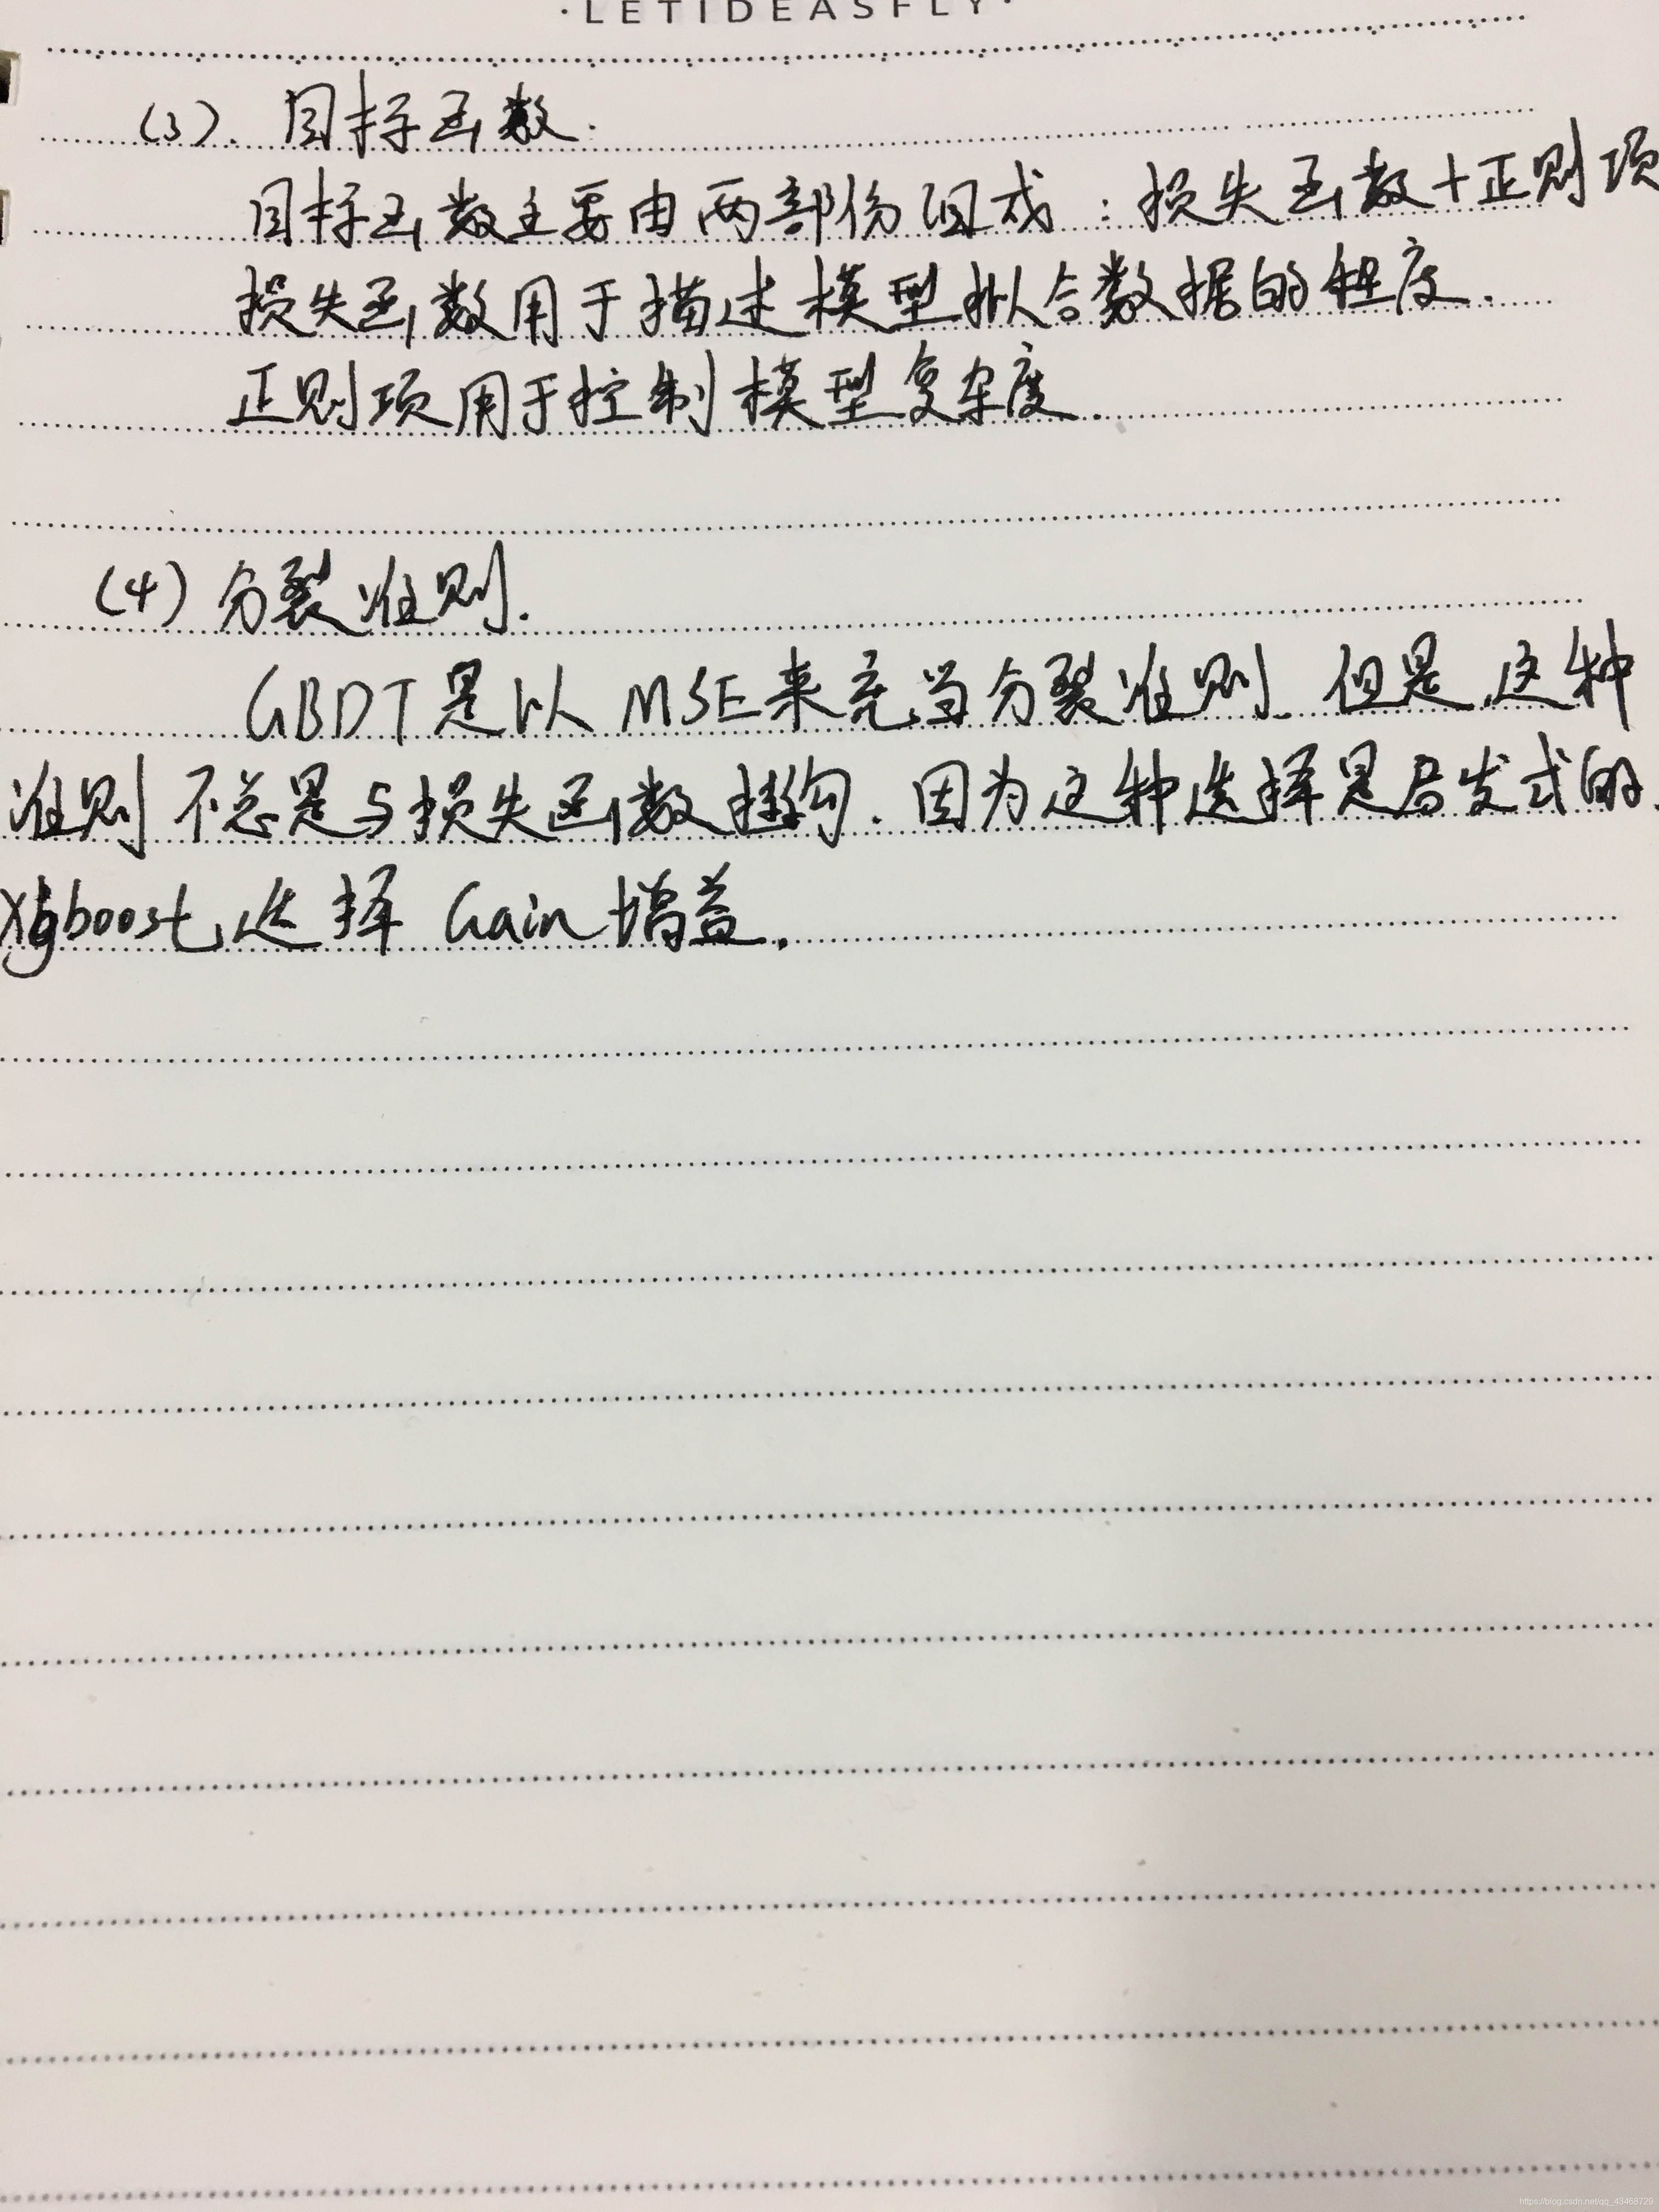 ·LETIDEASFLY·
(3). 目标函数.
目标函数主要由两部份组成：损失函数+正则项
损失函数用于描述模型拟合数据的程度.
正则项用于控制模型复杂度.
(4) 分裂准则.
GBDT是以MSE来充当分裂准则. 但是, 这种
准则不总是与损失函数挂钩. 因为这种选择是启发式的.
Xgboost, 选择 Gain 增益.
https://blog.csdn.net/qq_43468729